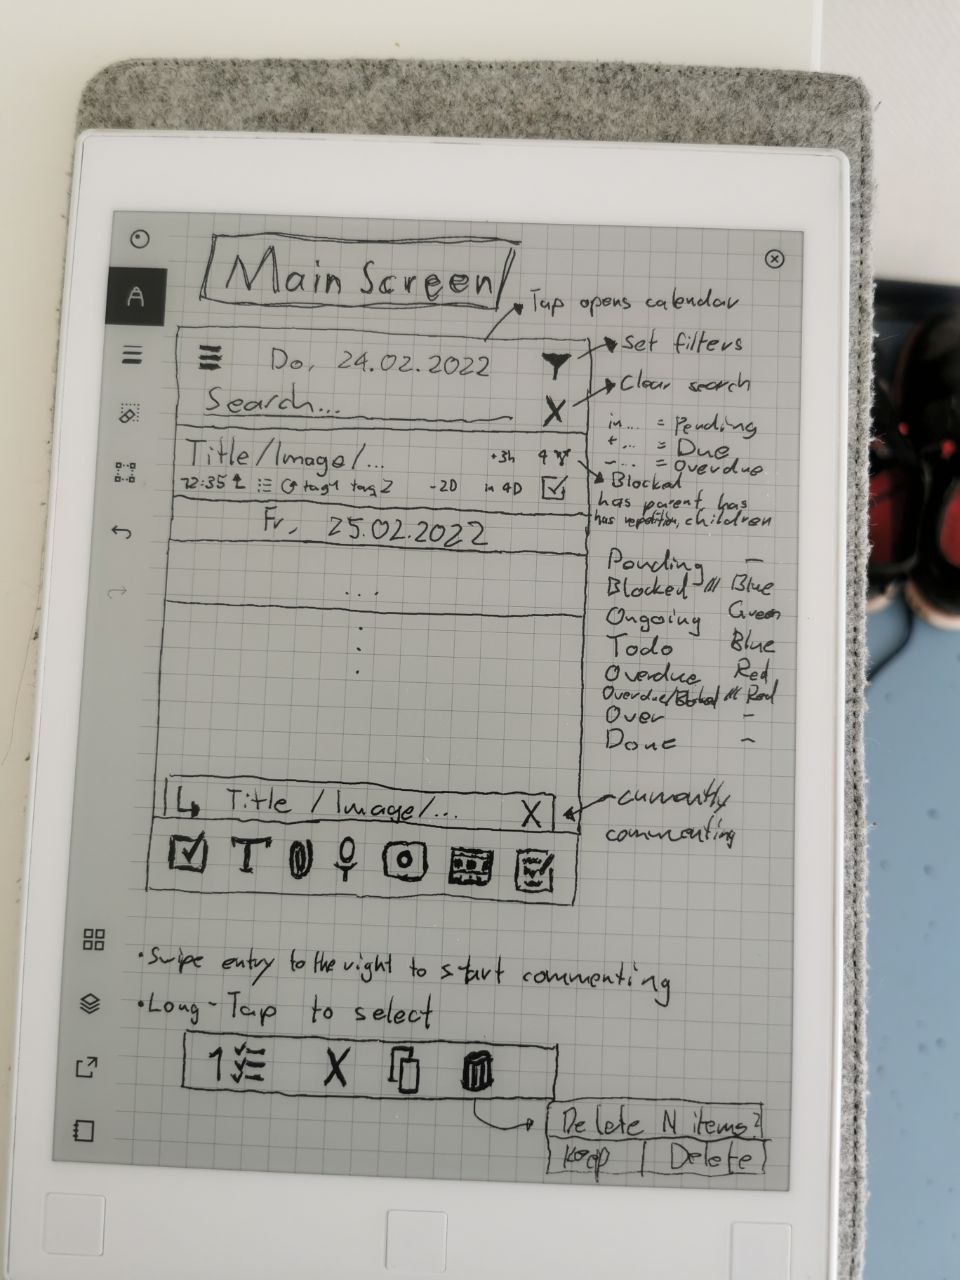 Main Screen
Tap opens calendar
Do, 24.02.2022
Set filters
Search...
X
Clear search
in ... = Pending
+ ... = Due
- ... = Overdue
Title/Image/...
+3h 4
12:35 tag1 tag2 -2D in 4D
Blocked
has parent, has
has repetition, children
Fr, 25.02.2022
...
Pending –
Blocked /// Blue
Ongoing Green
Todo Blue
Overdue Red
Overdue/Blocked /// Red
Over –
Done –
Title / Image/... X
currently
commenting
T
• Swipe entry to the right to start commenting
• Long-Tap to select
1 X
Delete N items?
Keep Delete